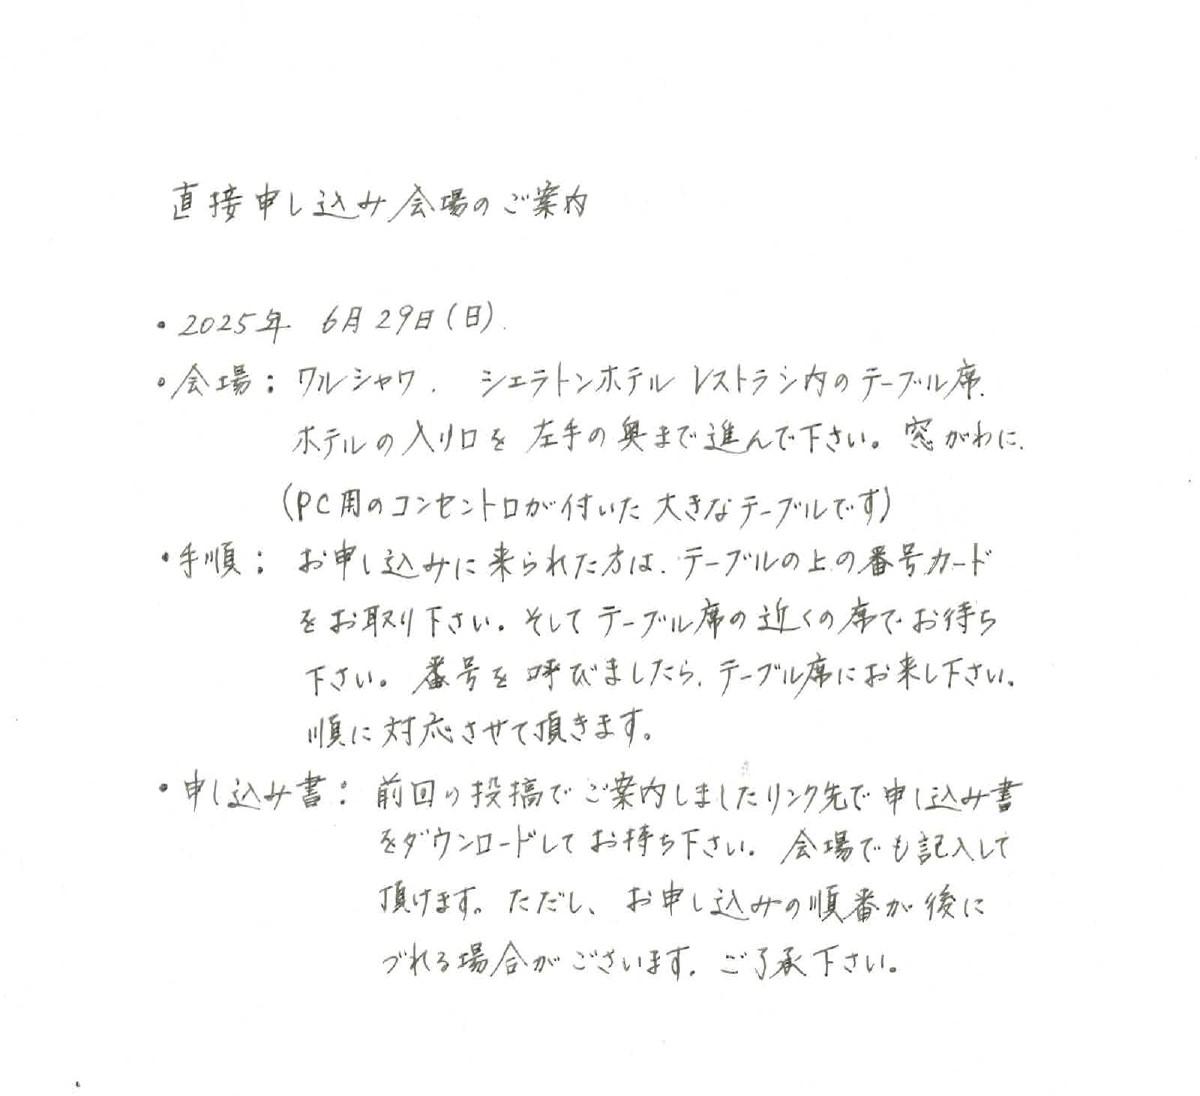 直接申し込み会場のご案内
・2025年 6月29日(日).
・会場: ワルシャワ. シェラトンホテル レストラン内のテーブル席.
ホテルの入り口を 左手の奥まで進んで下さい。窓がわに.
(PC用のコンセントロが付いた 大きなテーブルです)
・手順: お申し込みに来られた方は、テーブルの上の番号カード
をお取り下さい。そしてテーブル席の近くの席でお待ち
下さい。番号を呼びましたら、テーブル席にお来し下さい.
順に対応させて頂きます。
・申し込み書: 前回の投稿でご案内しましたリンク先で申し込み書
をダウンロードしてお持ち下さい。会場でも記入して
頂けます。ただし、お申し込みの順番が後に
づれる場合がございます. ご了承下さい。